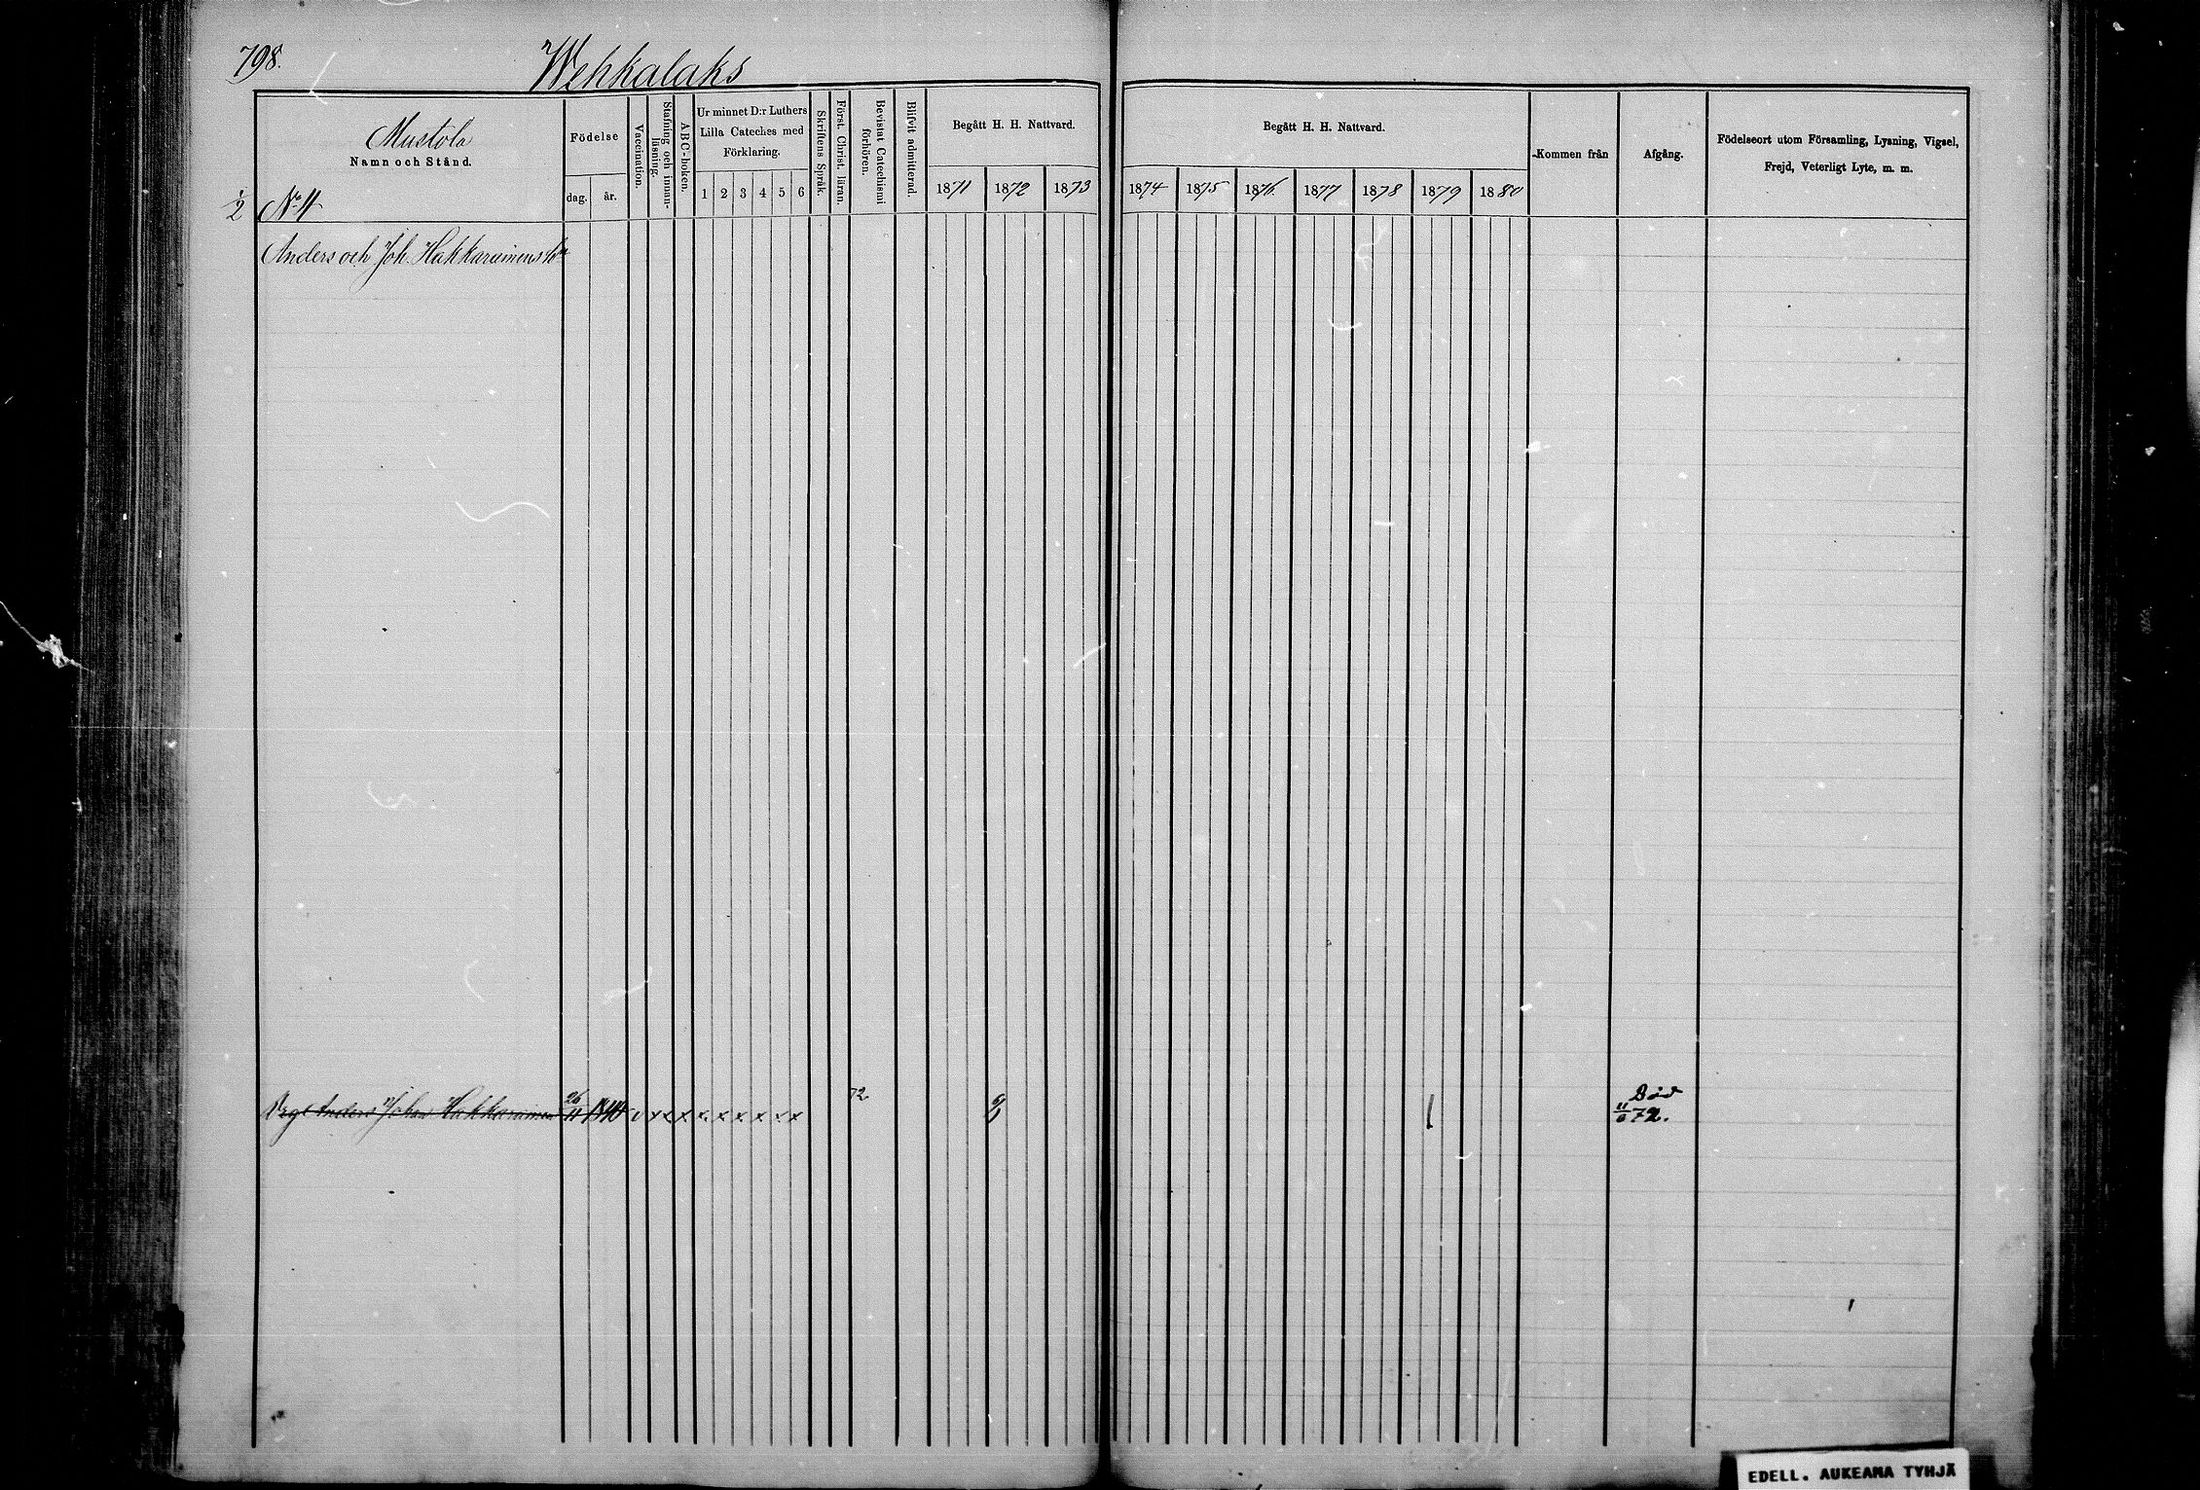 798.
Wehkalaks
Mustola
Namn och Stånd.
1/2 No 11
Födelse
dag. år.
Vaccination.
Stafning och innan-
läsning.
ABC-boken.
Ur minnet D:r Luthers
Lilla Cateches med
Förklaring.
1 2 3 4 5 6
Skriftens Språk.
Först. Christ. läran.
Bevistat Catechismi
förhören.
Blifvit admitterad.
Begått H. H. Nattvard.
1871 1872 1873
Begått H. H. Nattvard.
1874 1875 1876 1877 1878 1879 1880
Kommen från
Afgång.
Födelseort utom Församling, Lysning, Vigsel,
Frejd, Veterligt Lyte, m. m.
Anders och Joh. Hakkarainens
Anders Johan Hakkarainen 26/11 1840 v x x x x x x x x 72
Död
11/6 72.
EDELL. AUKEAMA TYHJÄ